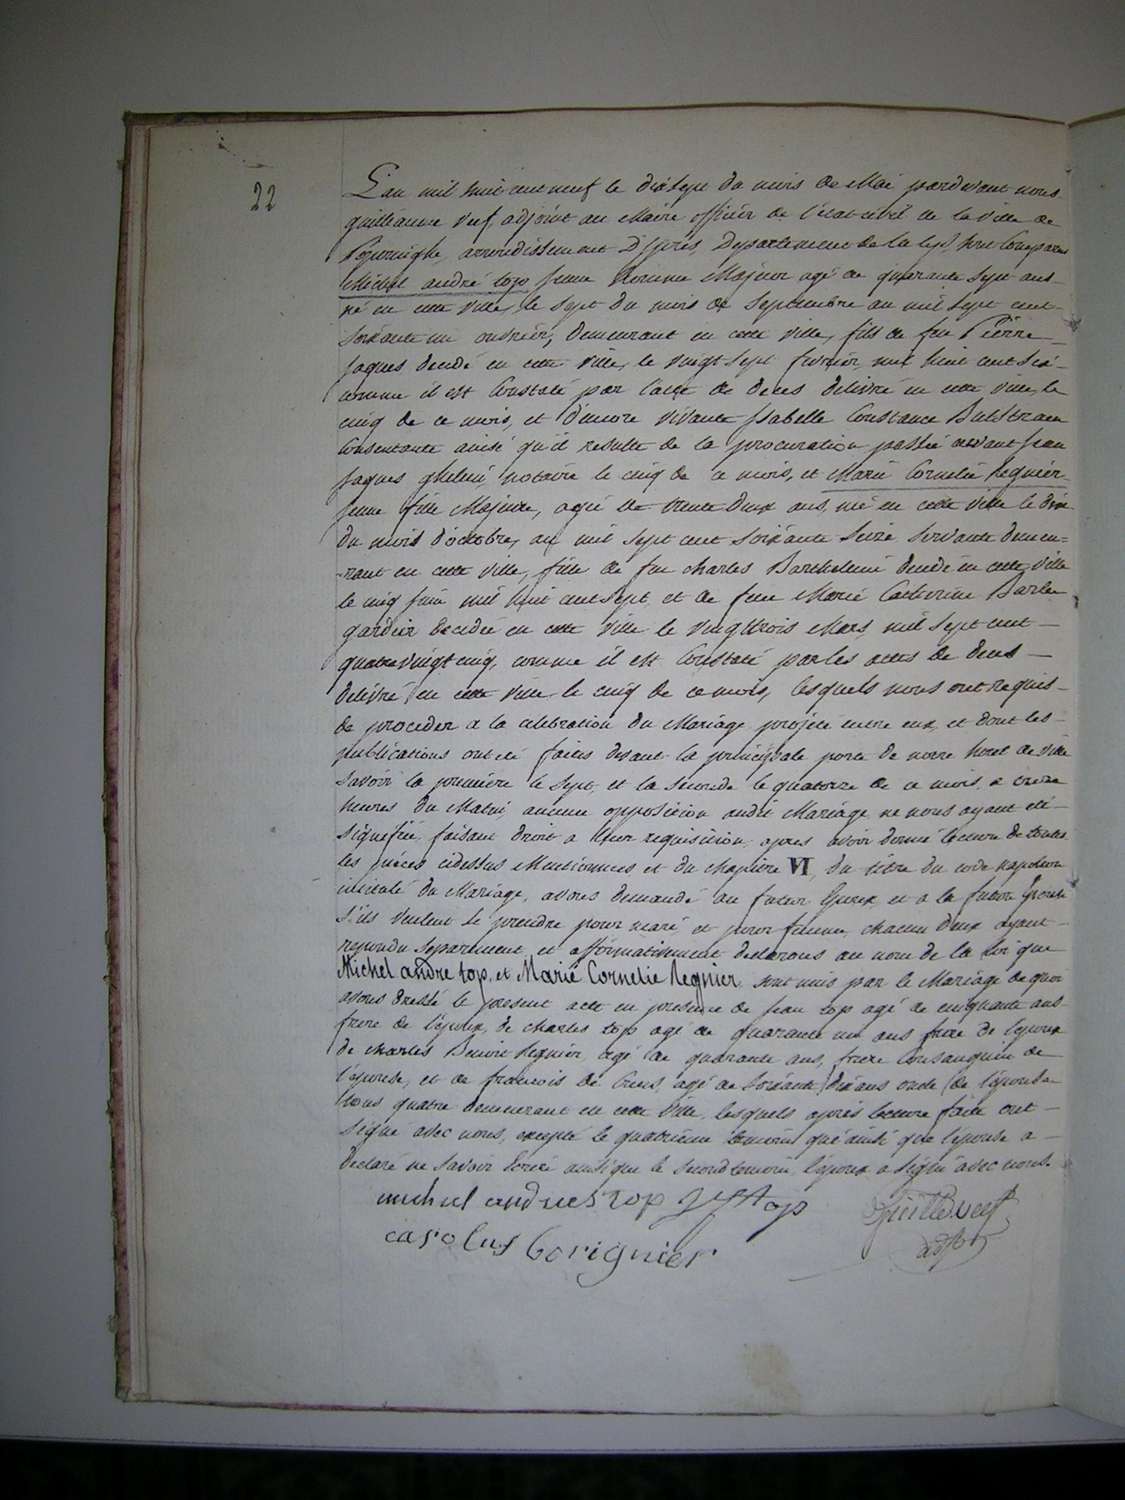 22
L'an mil huit cent neuf le dixsept du mois de Mai pardevant nous
guilleaume Veef, adjoint au Maire officier de l'état civil de la ville de
Poperinghe, arrondissement D'Ypres, Departement de la Lys, sont Comparus
Michel andré top jeune homme Majeur agé de quarante sept ans
né en cette ville, le sept du mois de Septembre an mil sept cent
soixante un ouvrier, demeurant en cette ville, fils de feu Pierre
jaques decedé en cette ville, le vingt sept fevrier mil huit cent six
comme il est Constaté par l'acte de deces delivré en cette ville, le
cinq de ce mois, et d'encore vivante Isabelle Constance
Consentante ainsi qu'il resulte de la procuration passée devant jean
jaques notaire le cinq de ce mois, et Marie Cornelie Regnier
jeune fille Majeure, agée de trente deux ans, née en cette ville le dix
du mois d'octobre, an mil sept cent soixante seize servante demeu-
-rant en cette ville, fille de feu charles Barthelemi decedé en cette ville
le cinq juin mil huit cent sept et de feue Marie Catherine Barbe
gardein decedée en cette ville le vingttrois Mars mil sept cent
quatrevingt cinq, comme il est Constaté par les actes de deces
delivré en cette ville le cinq de ce mois, lesquels nous ont requis
de proceder a la celebration du Mariage projeté entre eux, et dont les
publications ont eté faites devant la principale porte de notre hotel de ville
savoir la premiere le sept, et la seconde le quatorze de ce mois a onze
heures du Matin, aucune opposition audit Mariage ne nous ayant eté
signefiée, faisant droit a leur requisition, apres avoir donné lecture de toutes
les pieces cidessus Mentionnées et du chapitre VI, du titre du code napoleon
intitulé du Mariage, avons demandé au futur Epoux et a la future Epouse
s'ils veulent se prendre pour mari et pour femme, chacun deux ayant
repondu separement et affirmativement declarons au nom de la loi que
Michel andre top, et Marie Cornelie Regnier, sont unis par le Mariage de quoi
avons dressé le present acte en presence de jean top agé de cinquante ans
frere de l'epoux, de charles top agé de quarante un ans frere de l'epoux
de charles Benoit Regnier, agé de quarante ans, frere Consanguin de
l'epouse, et de francois de agé de soixante dix ans oncle de l'epouse
tous quatre demeurant en cette ville, lesquels après lecture faite ont
signé avec nous, excepté le quatrieme temoin qui ainsi que l'epouse a
declaré ne savoir Ecrire ainsi que le second temoin, l'epoux a signé avec nous.
michel andries top J top
Guille Veef
carolus b orignier
adjt